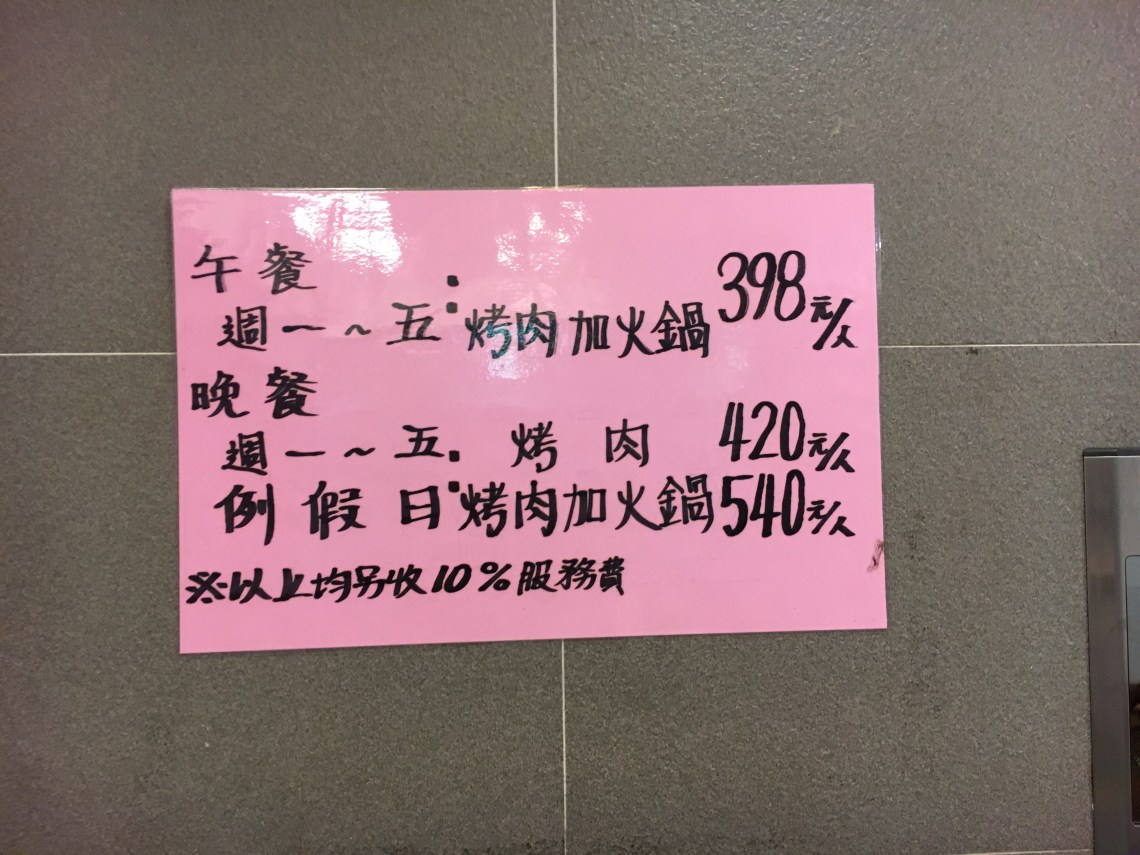 午餐
週一～五：烤肉加火鍋398元/人
晚餐
週一～五：烤肉 420元/人
例假日：烤肉加火鍋540元/人
※以上均另收10%服務費